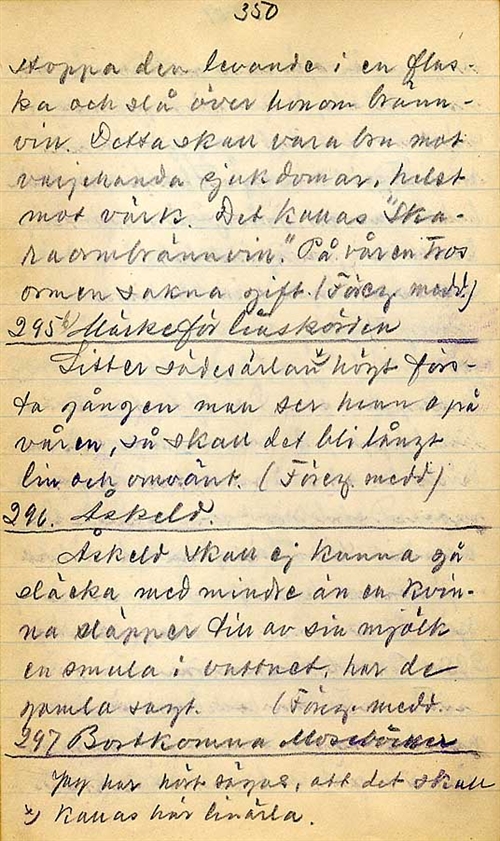 350
stoppa den levande i en flas-
ka och slå över honom bränn-
vin. Detta skall vara bra mot
varjehanda sjukdomar, helst
mot värk. Det kallas "Ska-
raormbrännvin." På våren tros
ormen sakna gift. (Föreg. medd.)
295 Märke för linskörden
Sitter sädesärlan x) högt förs-
ta gången man ser henne på
våren, så skall det bli långt
lin och omvänt. (Föreg. medd)
296. Åskeld.
Åskeld skall ej kunna gå
släcka med mindre än en kvin-
na släpper till av sin mjölk
en smula i vattnet, har de
gamla sagt. (Föreg. medd.
297 Bortkomna Moseböcker
Jag har hört sägas, att det skall
x) kallas här linärla.